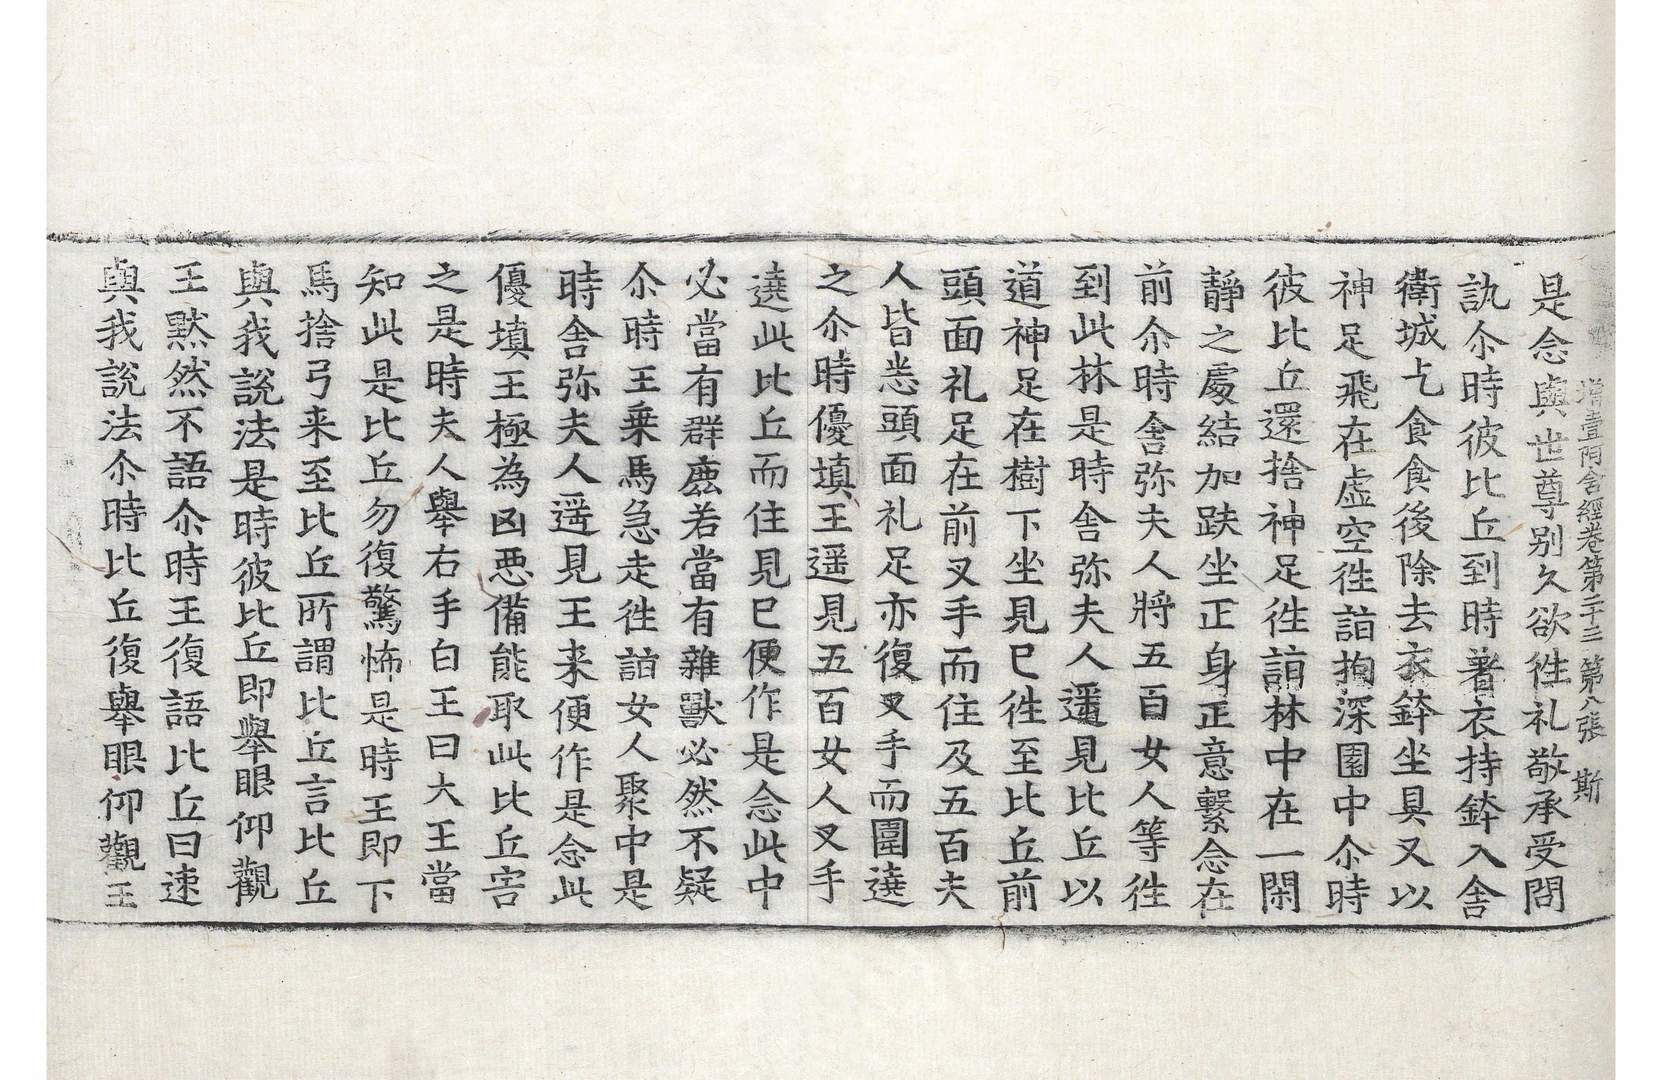 增壹阿含經卷第二十三 第八張 斯
是念與世尊別久欲徃礼敬承受問
訙尒時彼比丘到時著衣持鉢入舍
衛城乞食食後除去衣鉢坐具又以
神足飛在虛空徃詣拘深園中尒時
彼比丘還捨神足徃詣林中在一閑
靜之處結加趺坐正身正意繫念在
前尒時舍弥夫人將五百女人等徃
到此林是時舍弥夫人遥見比丘以
道神足在樹下坐見已徃至比丘前
頭面礼足在前叉手而住及五百夫
人皆悉頭面礼足亦復叉手而圍遶
之尒時優填王遥見五百女人叉手
遶此比丘而住見已便作是念此中
必當有群鹿若當有雜獸必然不疑
尒時王乗馬急走徃詣女人聚中是
時舍弥夫人遥見王来便作是念此
優填王極為凶悪備能取此比丘害
之是時夫人舉右手白王曰大王當
知此是比丘勿復驚怖是時王即下
馬捨弓来至比丘所謂比丘言比丘
與我說法是時彼比丘即舉眼仰觀
王黙然不語尒時王復語比丘曰速
與我說法尒時比丘復舉眼仰觀王